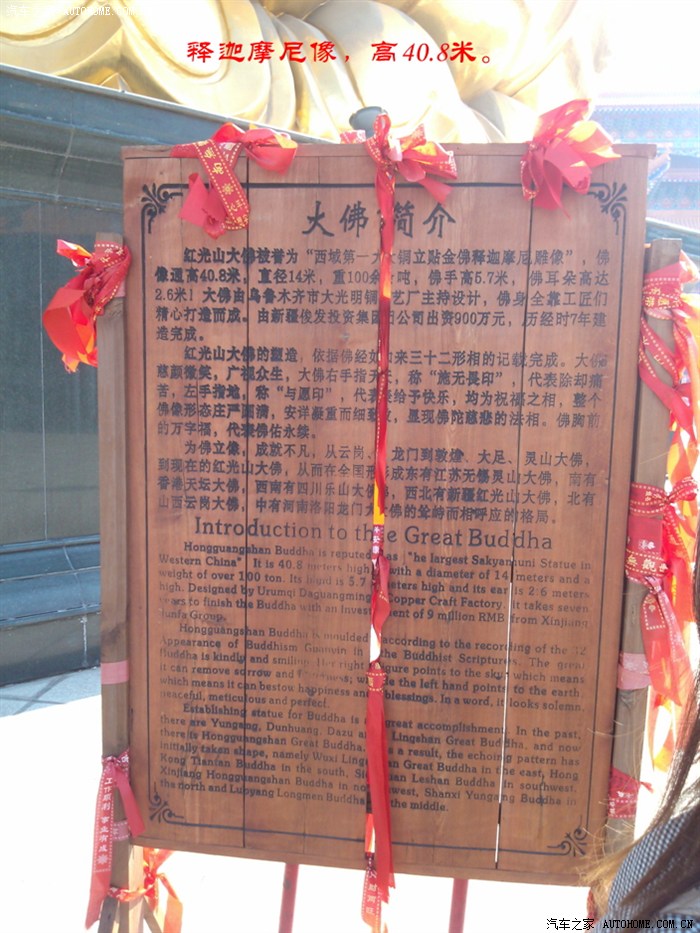 汽车之家 | AUTOHOME.COM.CN
释迦摩尼像，高40.8米。
大佛简介
红光山大佛被誉为“西域第一大铜立贴金佛释迦摩尼雕像”，佛
像通高40.8米，直径14米，重100余吨，佛手高5.7米，佛耳朵高达
2.6米！大佛由乌鲁木齐市大光明铜艺厂主持设计，佛身全靠工匠们
精心打造而成。由新疆俊发投资集团公司出资900万元，历经时7年建
造完成。
红光山大佛的塑造，依据佛经如来三十二形相的记载完成。大佛
慈颜微笑，广视众生，大佛右手指天，称“施无畏印”，代表除却痛
苦，左手指地，称“与愿印”，代表给予快乐，均为祝福之相，整个
佛像形态庄严圆清，安洋凝重而细致，显现佛陀慈悲的法相。佛胸前
的万字福，代表佛佑永续。
为佛立像，成就不凡，从云岗、龙门到敦煌、大足、灵山大佛，
到现在的红光山大佛，从而在全国形成东有江苏无锡灵山大佛，南有
香港天坛大佛，西南有四川乐山大佛，西北有新疆红光山大佛，北有
山西云岗大佛，中有河南洛阳龙门大佛的耸峙而相呼应的格局。
Introduction to the Great Buddha
Hongguangshan Buddha is reputed as "he largest Sakyamuni Statue in
Western China" It is 40.8 meters high with a diameter of 14 meters and a
weight of over 100 ton. Its hand is 5.7 meters high and its ear is 2.6 meters
high. Designed by Urumqi Daguangming Copper Craft Factory. It takes seven
years to finish the Buddha with an Investment of 9 million RMB from Xinjiang
Junfa Group.
Hongguangshan Buddha is moulded according to the recording of the 32
Appearance of Buddhism Guanyin in the Buddhist Scriptures. The great
Buddha is kindly and smiling. The right figure points to the sky, which means
it can remove sorrow and, while the left hand points to the earth,
which means it can bestow happiness and blessings. In a word, it looks solemn,
peaceful, meticulous and perfect.
Establishing statue for Buddha is a great accomplishment. In the past,
there are Yungang, Dunhuang, Dazu and Lingshan Great Buddha, and now
there is Hongguangshan Great Buddha. As a result, the echoing pattern has
initially taken shape, namely Wuxi Lingshan Great Buddha in the east, Hong
Kong Tiantan Buddha in the south, Sichuan Leshan Buddha in southwest,
Xinjiang Hongguangshan Buddha in northwest, Shanxi Yungang Buddha in
the north and Luoyang Longmen Buddha in the middle.
工作顺利 事业有成
汽车之家 | AUTOHOME.COM.CN